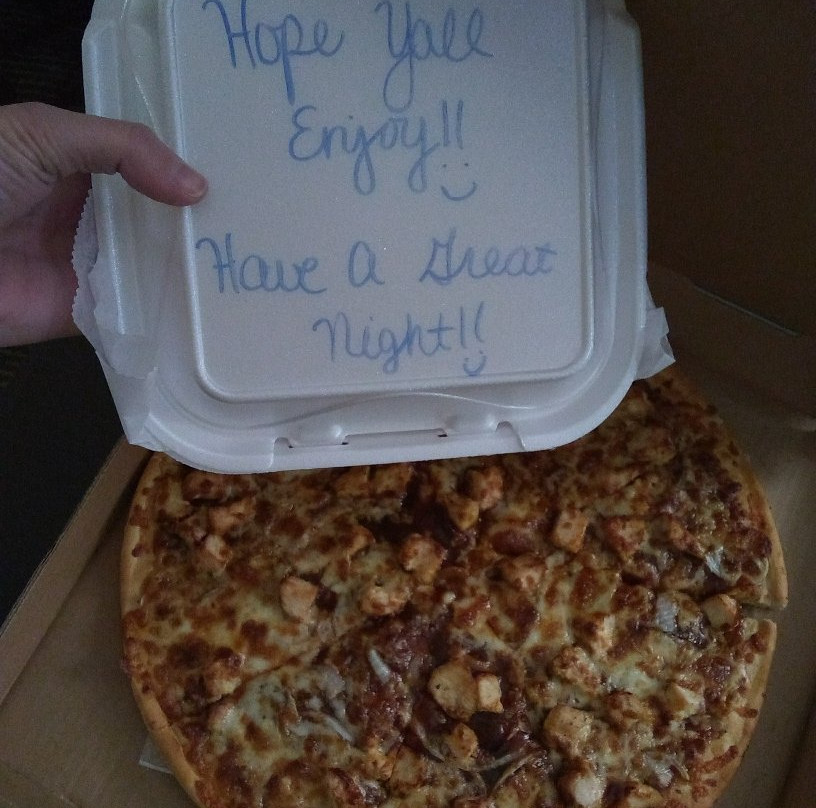 Hope Yall
Enjoy!!
Have A Great
Night!!